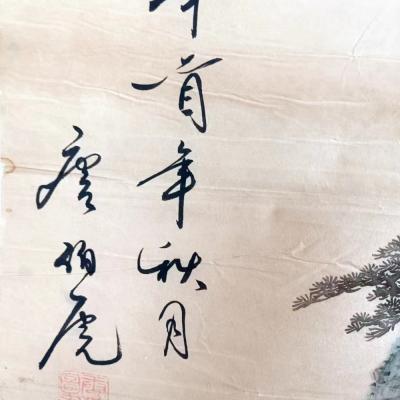 首年秋月
唐伯虎